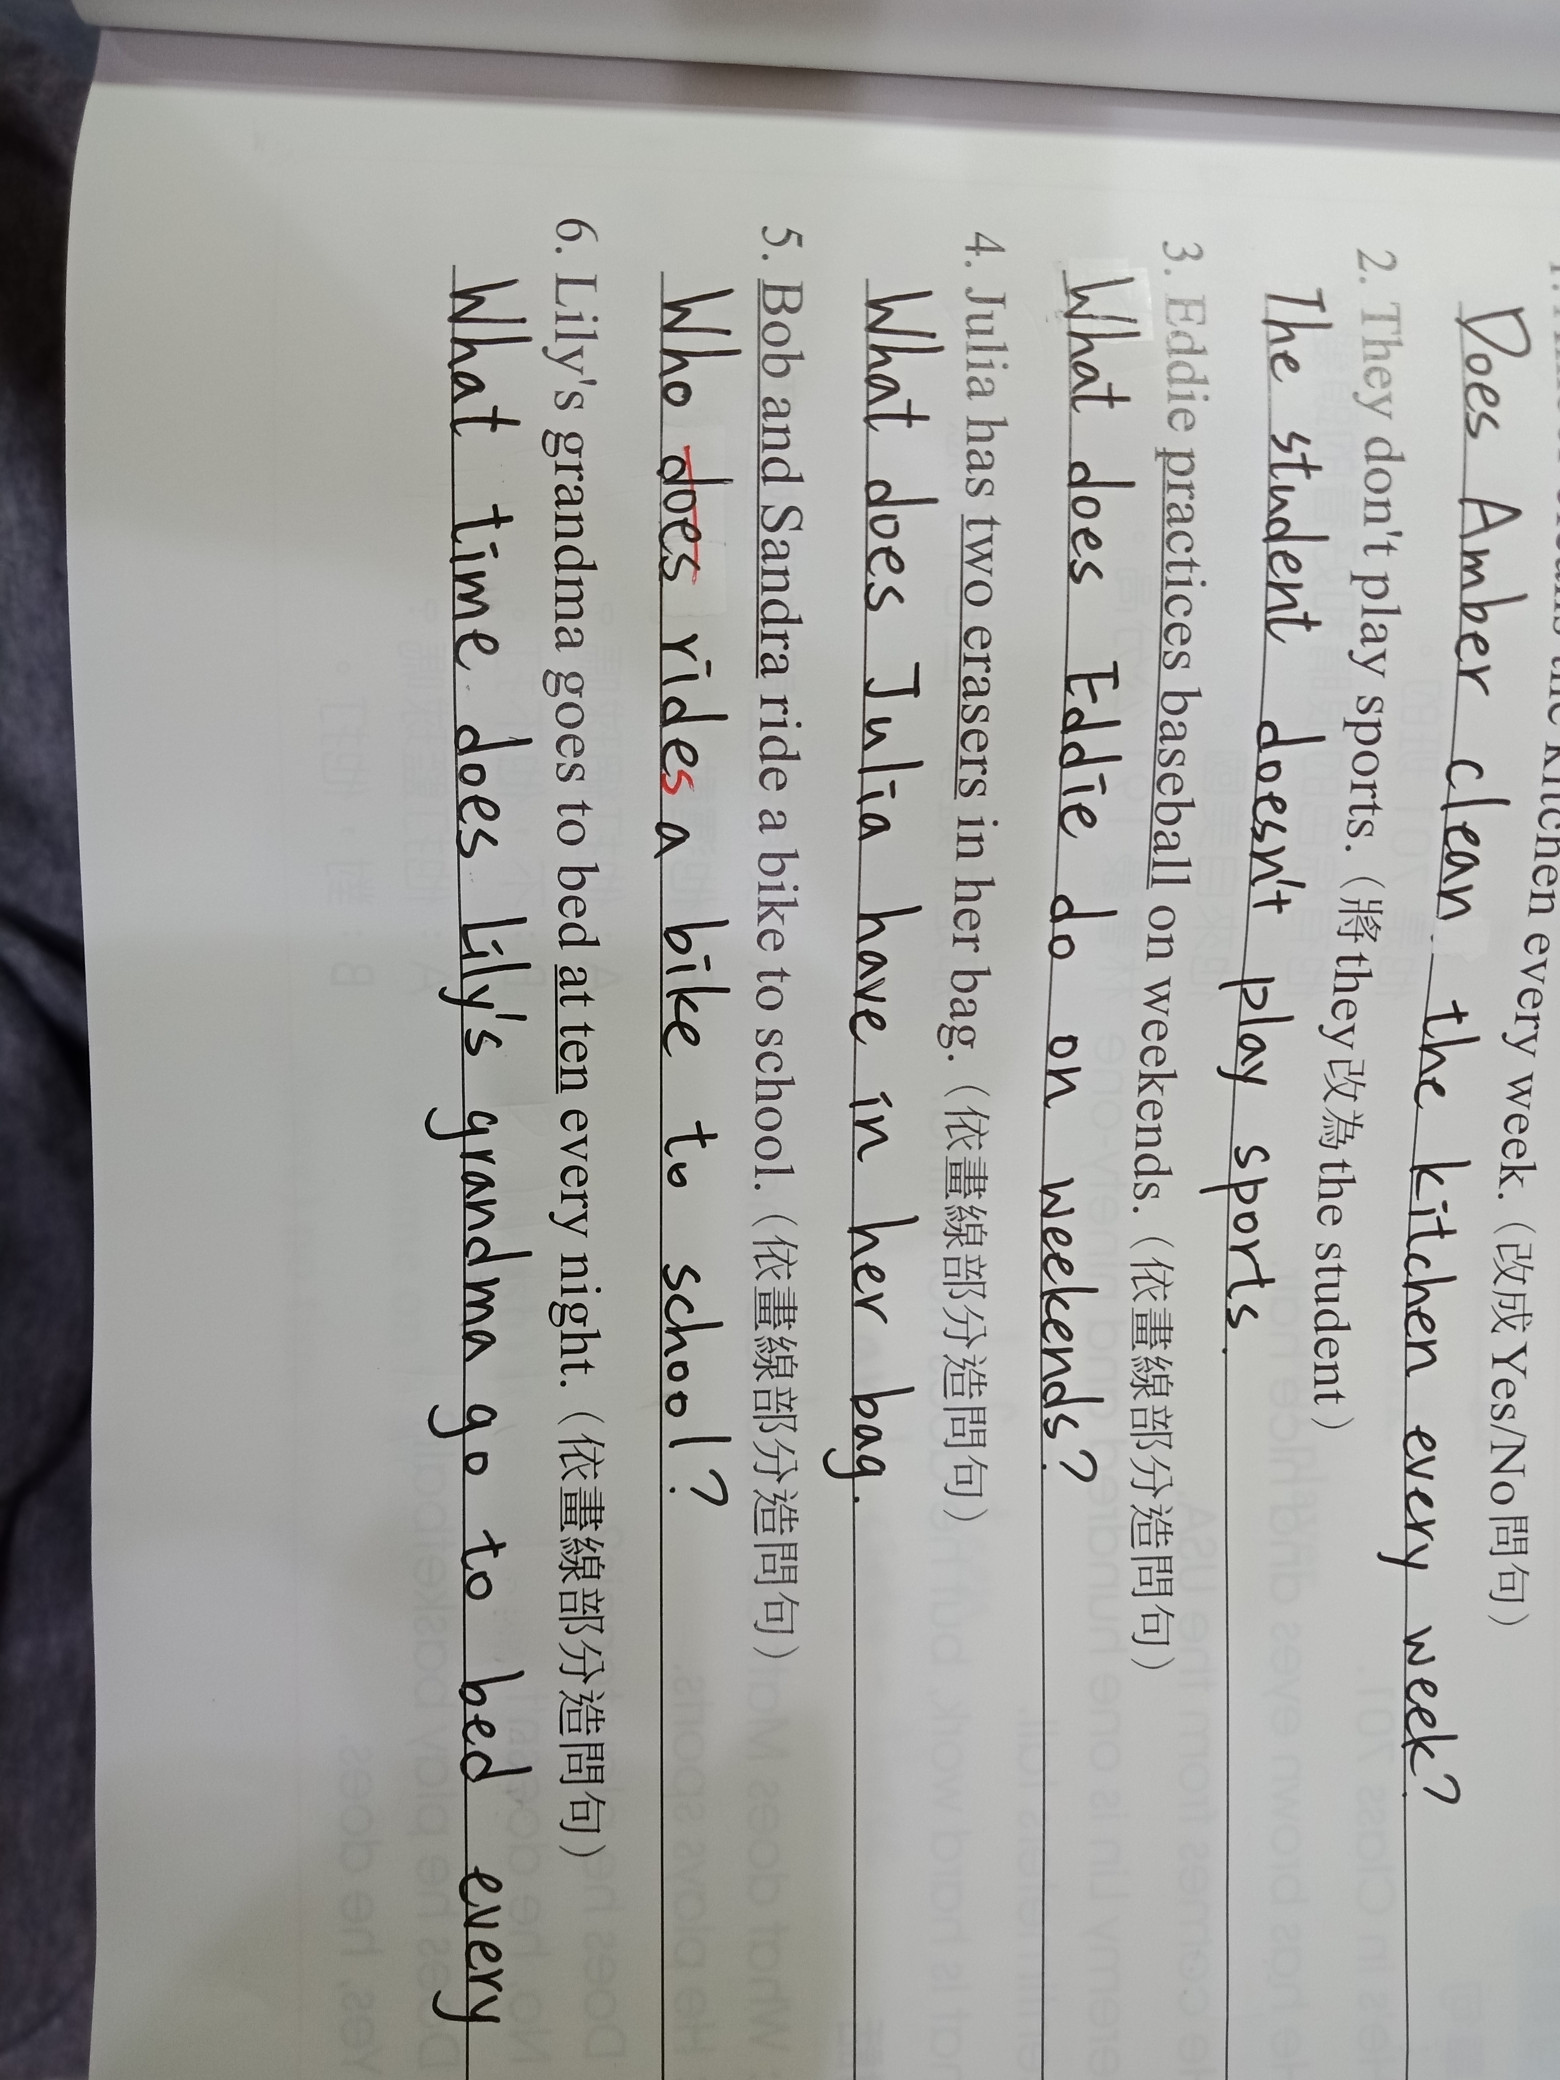 kitchen every week. (改成Yes/No問句)
Does Amber clean the kitchen every week?
2. They don't play sports. (將they改為the student)
The student doesn't play sports.
3. Eddie practices baseball on weekends. (依畫線部分造問句)
What does Eddie do on weekends?
4. Julia has two erasers in her bag. (依畫線部分造問句)
What does Julia have in her bag.
5. Bob and Sandra ride a bike to school. (依畫線部分造問句)
Who does rides a bike to school?
6. Lily's grandma goes to bed at ten every night. (依畫線部分造問句)
What time does Lily's grandma go to bed every